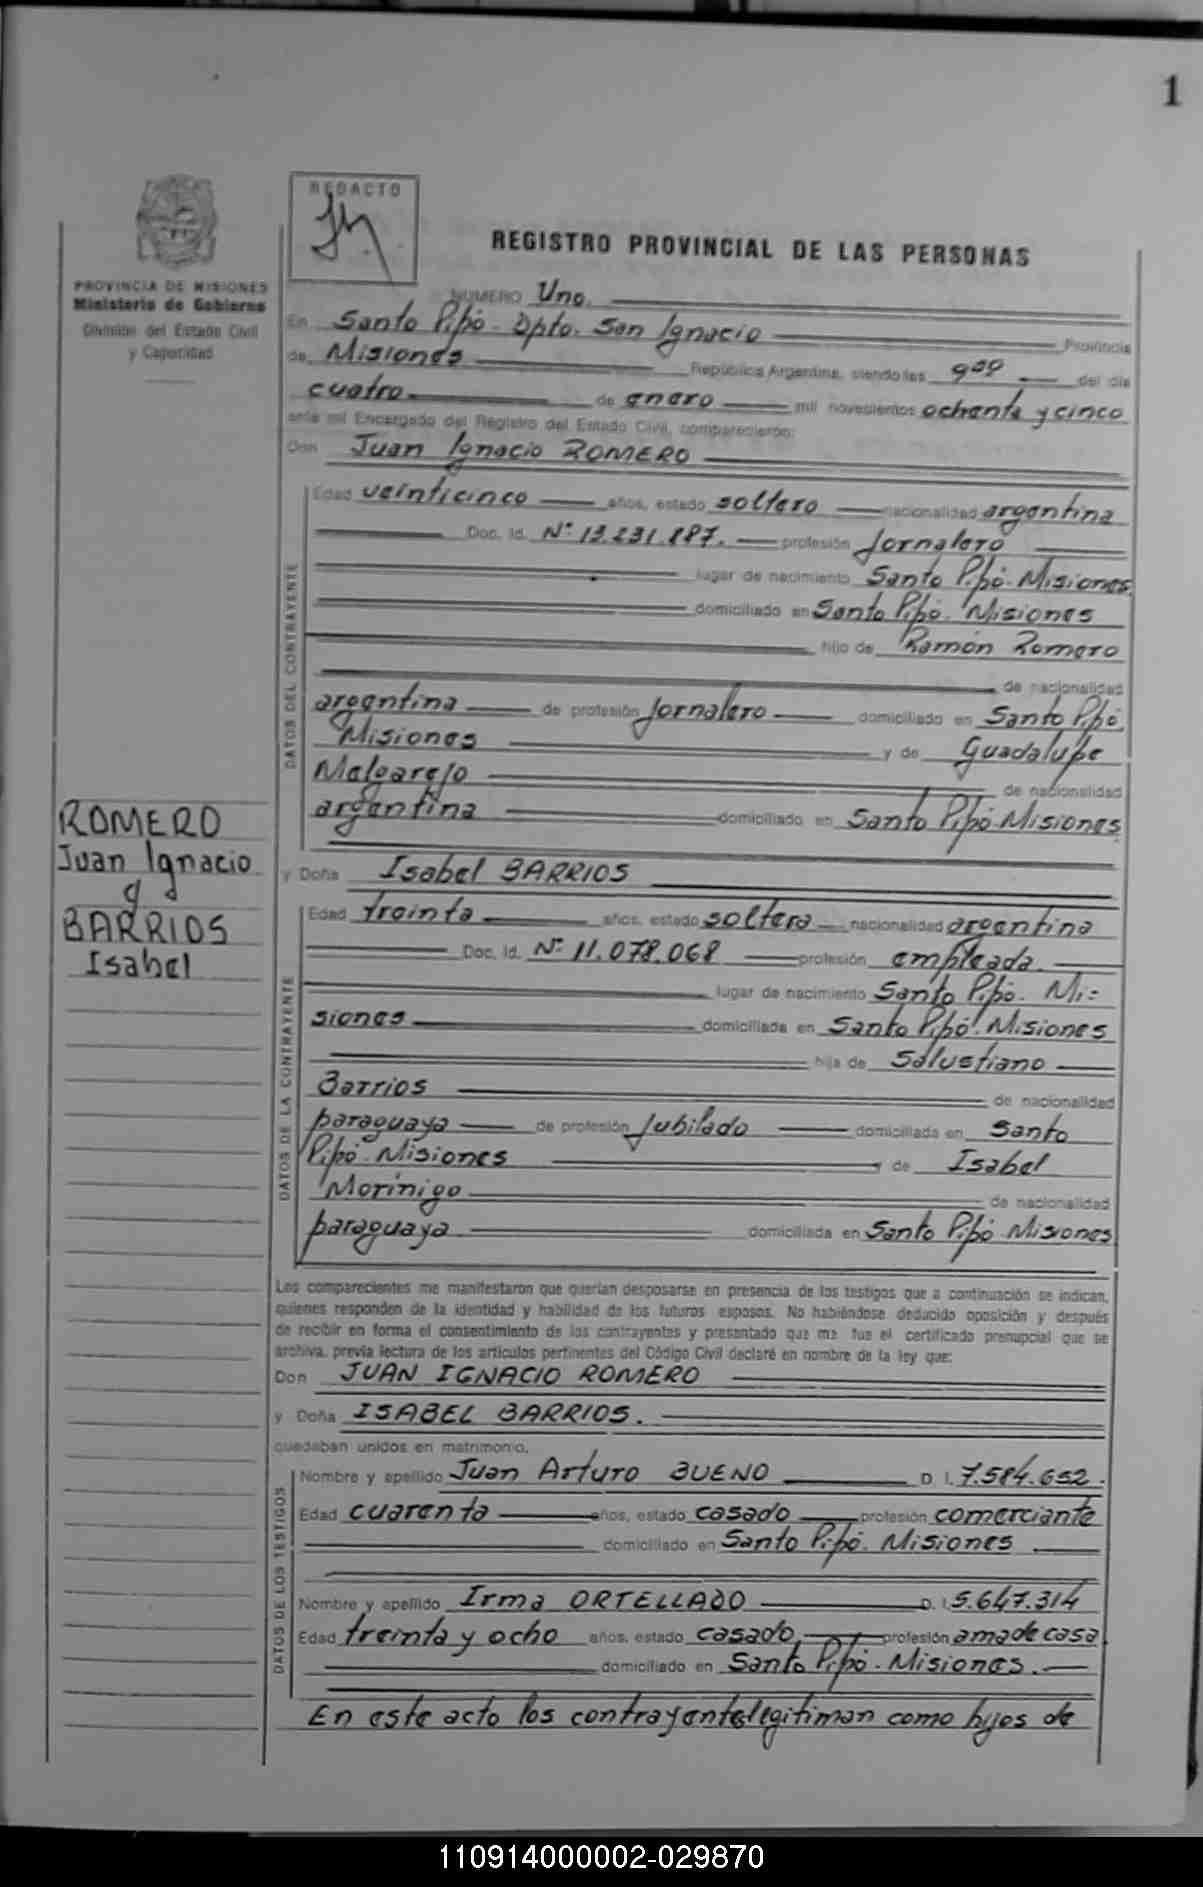 1
REDACTO
PROVINCIA DE MISIONES
Ministerio de Gobierno
División del Estado Civil
y Capacidad
REGISTRO PROVINCIAL DE LAS PERSONAS
NUMERO Uno.
En Santo Pipó - Dpto. San Ignacio Provincia
de Misiones República Argentina, siendo las 9,00 del día
cuatro de enero mil novecientos ochenta y cinco
ante mi Encargado del Registro del Estado Civil, comparecieron:
Don Juan Ignacio ROMERO
DATOS DEL CONTRAYENTE
Edad veinticinco años, estado soltero nacionalidad argentina
Doc. Id. Nº 13.231.887. profesión Jornalero
lugar de nacimiento Santo Pipó - Misiones
domiciliado en Santo Pipó. Misiones
hijo de Ramón Romero
de nacionalidad
argentina de profesión Jornalero domiciliado en Santo Pipó
Misiones y de Guadalupe
Melgarejo de nacionalidad
argentina domiciliado en Santo Pipó Misiones
ROMERO
Juan Ignacio
y
BARRIOS
Isabel
y Doña Isabel BARRIOS
DATOS DE LA CONTRAYENTE
Edad treinta años, estado soltera nacionalidad argentina
Doc. Id. Nº 11.078.068 profesión empleada
lugar de nacimiento Santo Pipó. Mi=
siones domiciliada en Santo Pipó. Misiones
hija de Salustiano
Barrios de nacionalidad
paraguaya de profesión Jubilado domiciliada en Santo
Pipó - Misiones y de Isabel
Morinigo de nacionalidad
paraguaya domiciliada en Santo Pipó Misiones
Los comparecientes me manifestaron que querían desposarse en presencia de los testigos que a continuación se indican,
quienes responden de la identidad y habilidad de los futuros esposos. No habiéndose deducido oposición y después
de recibir en forma el consentimiento de los contrayentes y presentado que me fue el certificado prenupcial que se
archiva, previa lectura de los artículos pertinentes del Código Civil declaré en nombre de la ley que:
Don JUAN IGNACIO ROMERO
y Doña ISABEL BARRIOS.
quedaban unidos en matrimonio.
DATOS DE LOS TESTIGOS
Nombre y apellido Juan Arturo BUENO D. I. 7.584.652.
Edad cuarenta años, estado casado profesión comerciante
domiciliado en Santo Pipó. Misiones
Nombre y apellido Irma ORTELLADO D. I. 5.647.314
Edad treinta y ocho años, estado casado profesión ama de casa
domiciliado en Santo Pipó - Misiones.
En este acto los contrayentes legitiman como hijos de
110914000002-029870